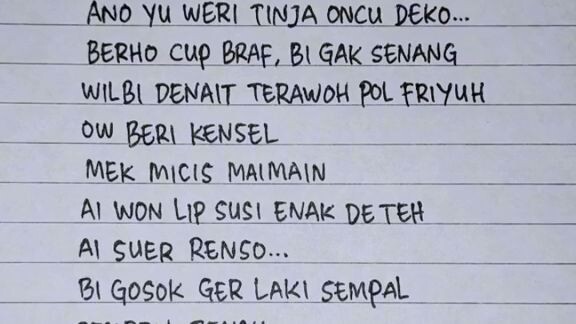 ANO YU WERI TINJA ONCU DEKO...
BERHO CUP BRAF, BI GAK SENANG
WILBI DENAIT TERAWOH POL FRIYUH
OW BERI KENSEL
MEK MICIS MAIMAIN
AI WON LIP SUSI ENAK DETEH
AI SUER RENSO...
BI GOSOK GER LAKI SEMPAL